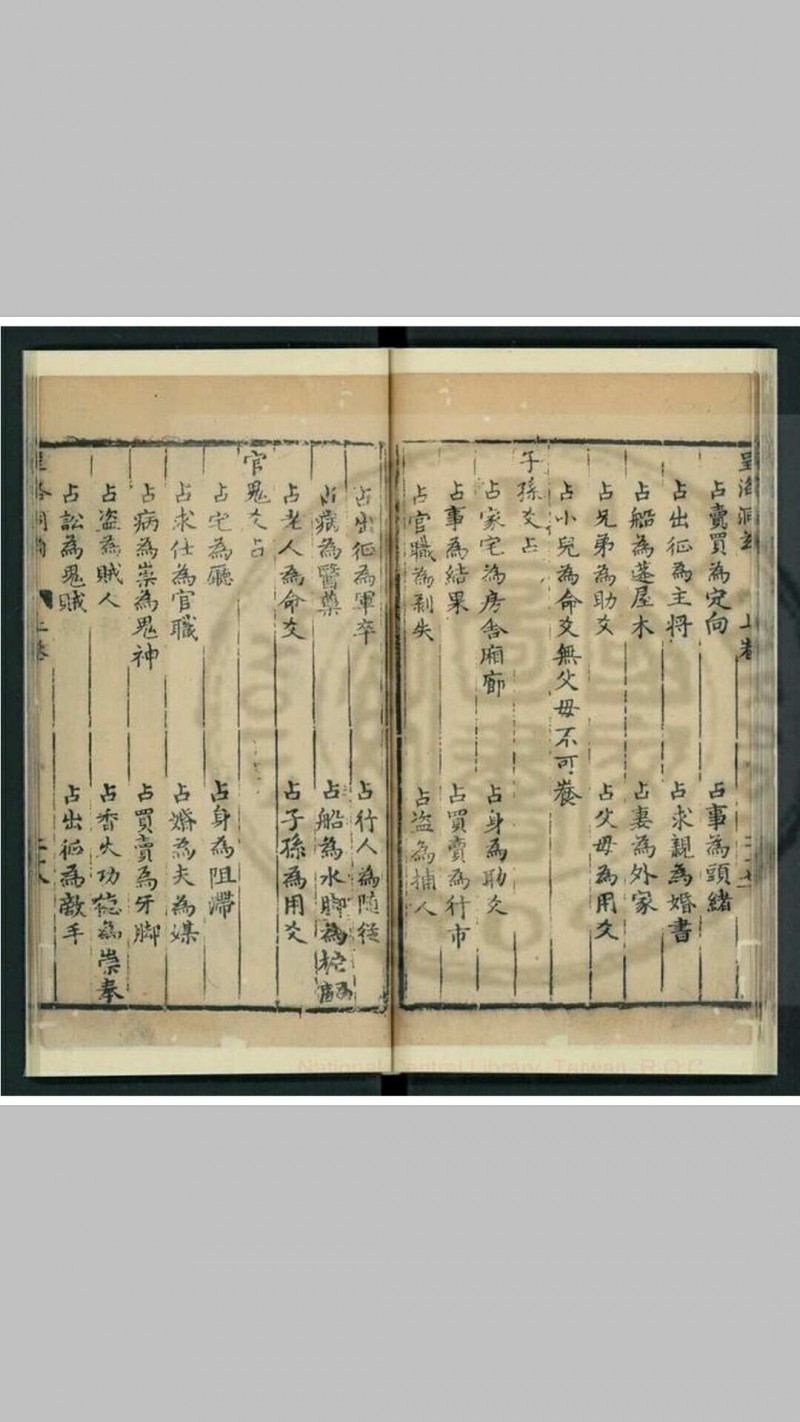 占賣買為定向　占事為頭緒
占出征為主將　占求親為婚書
占船為蓬屋木　占妻為外家
占兄弟為助爻　占父母為用爻
占小兒為命爻無父母不可養
子孫爻占
占家宅為房舍廂廊　占身為助爻
占事為結果　占買賣為行市
占官職為剥失　占盗為捕人
占出征為軍卒　占行人為隨從
占病為醫藥　占船為水脚為舵
占老人為命爻　占子孫為用爻
官鬼爻占
占宅為廳　占身為阻滯
占求仕為官職　占婚為夫為媒
占病為祟為鬼神　占買賣為牙脚
占盗為賊人　占香火功德為崇奉
占訟為鬼賊　占出征為敵手
上卷
National Central Library, Taiwan, R.O.C.